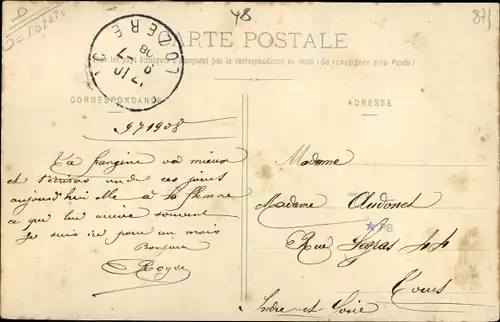 D = Lozère
48
871
CARTE POSTALE
Tous les pays étrangers n'acceptent pas la correspondance au recto (Se renseigner à la Poste)
LOZERE
9-7
08
CORRESPONDANCE
ADRESSE
9 7 1908
Ta frangine va mieux
et t'écrira un de ces jours
aujourd'hui elle a la flemme
ce que lui arrive souvent
Je suis ici pour un mois
Bonjour
Royer
Madame
Madame Audonet
Rue 44
PB
Tours
Indre-et-Loire